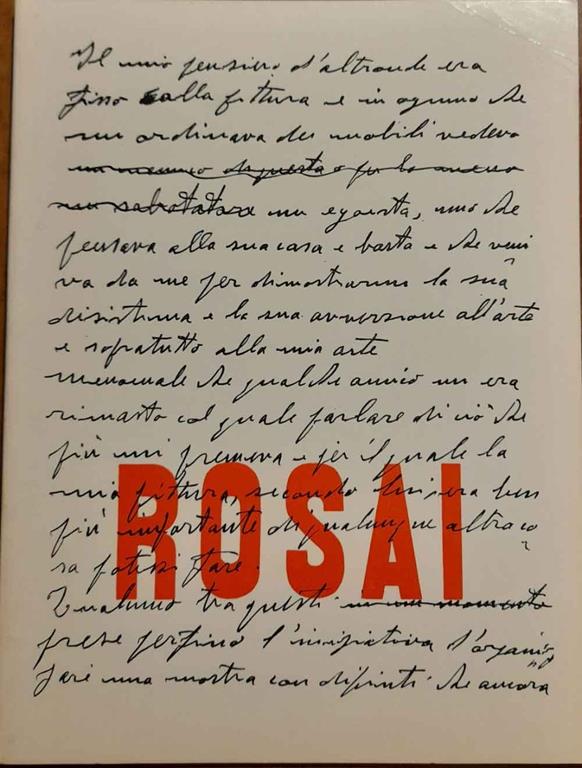 Il mio pensiero d'altronde era
fisso alla pittura e in ognuno che
mi ordinava dei mobili vedevo
un nemico di questa o per lo meno
un egoista, uno che
pensava alla sua casa e basta e che veni
va da me per dimostrarmi la sua
disistima e la sua avversione all'arte
e sopratutto alla mia arte
menomale che qualche amico mi era
rimasto col quale parlare di ciò che
più mi premeva e per il quale la
mia pittura, secondo lui, era ben
più importante di qualunque altra co
sa potessi fare.
ROSAI
Qualcuno tra questi
prese perfino l'iniziativa d'organiz
zare una mostra con dipinti che ancora